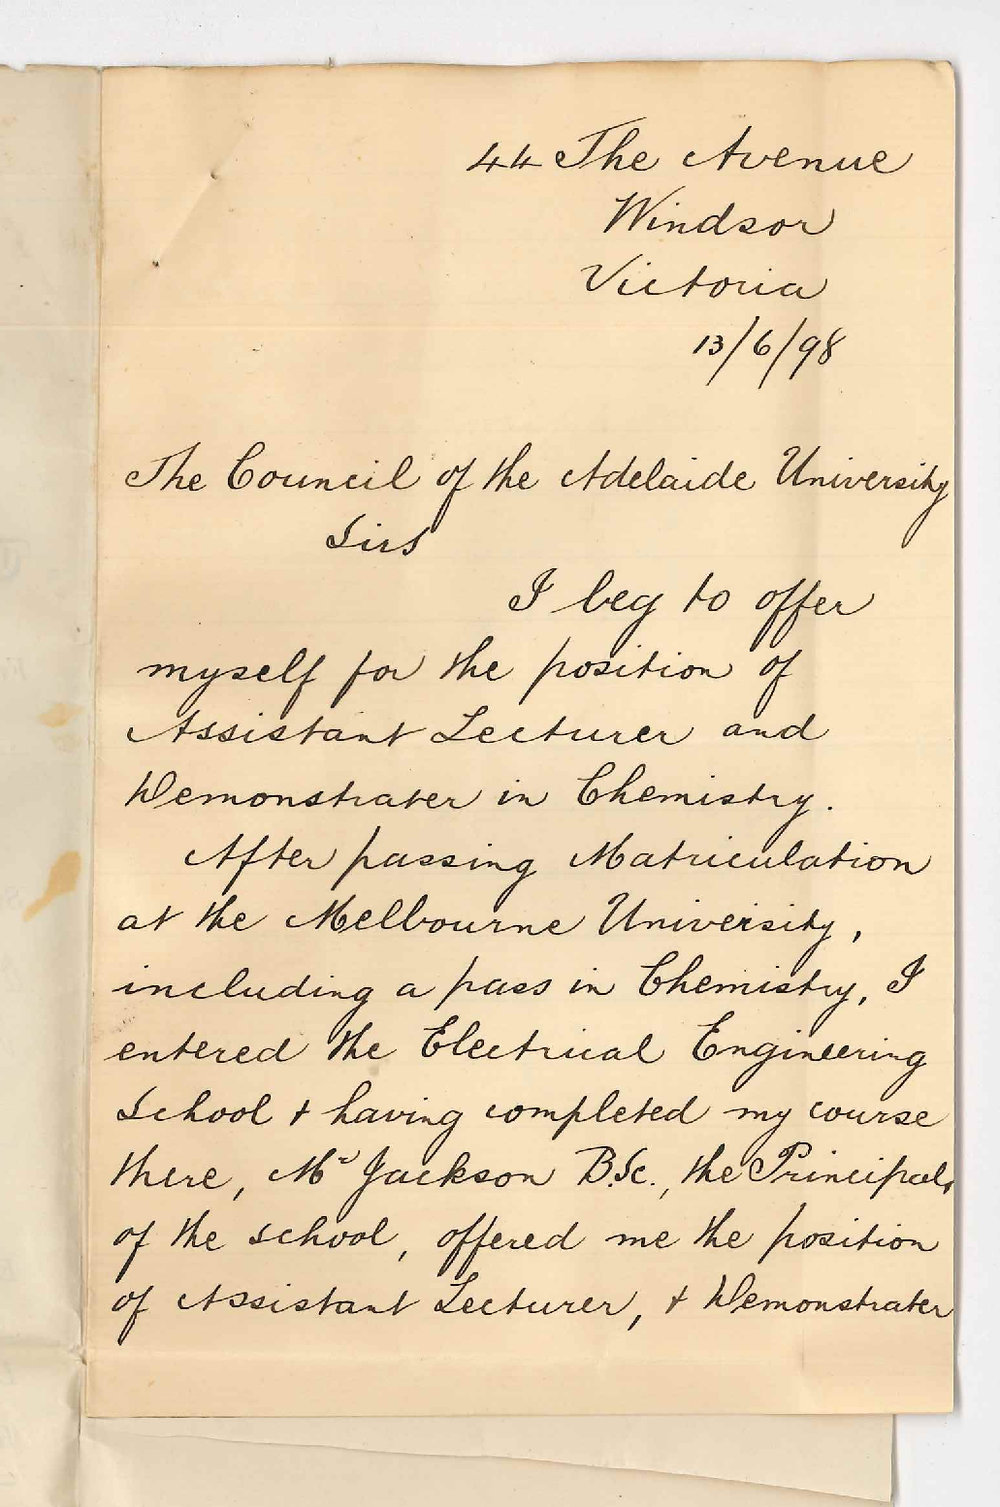 44 The Avenue
Windsor
Victoria
13/6/98
The Council of the Adelaide University
Sirs
I beg to offer
myself for the position of
Assistant Lecturer and
Demonstrater in Chemistry.
After passing Matriculation
at the Melbourne University,
including a pass in Chemistry, I
entered the Electrical Engineering
School + having completed my course
there, Mr Jackson B.Sc., the Principal,
of the school, offered me the position
of Assistant Lecturer, + Demonstrater